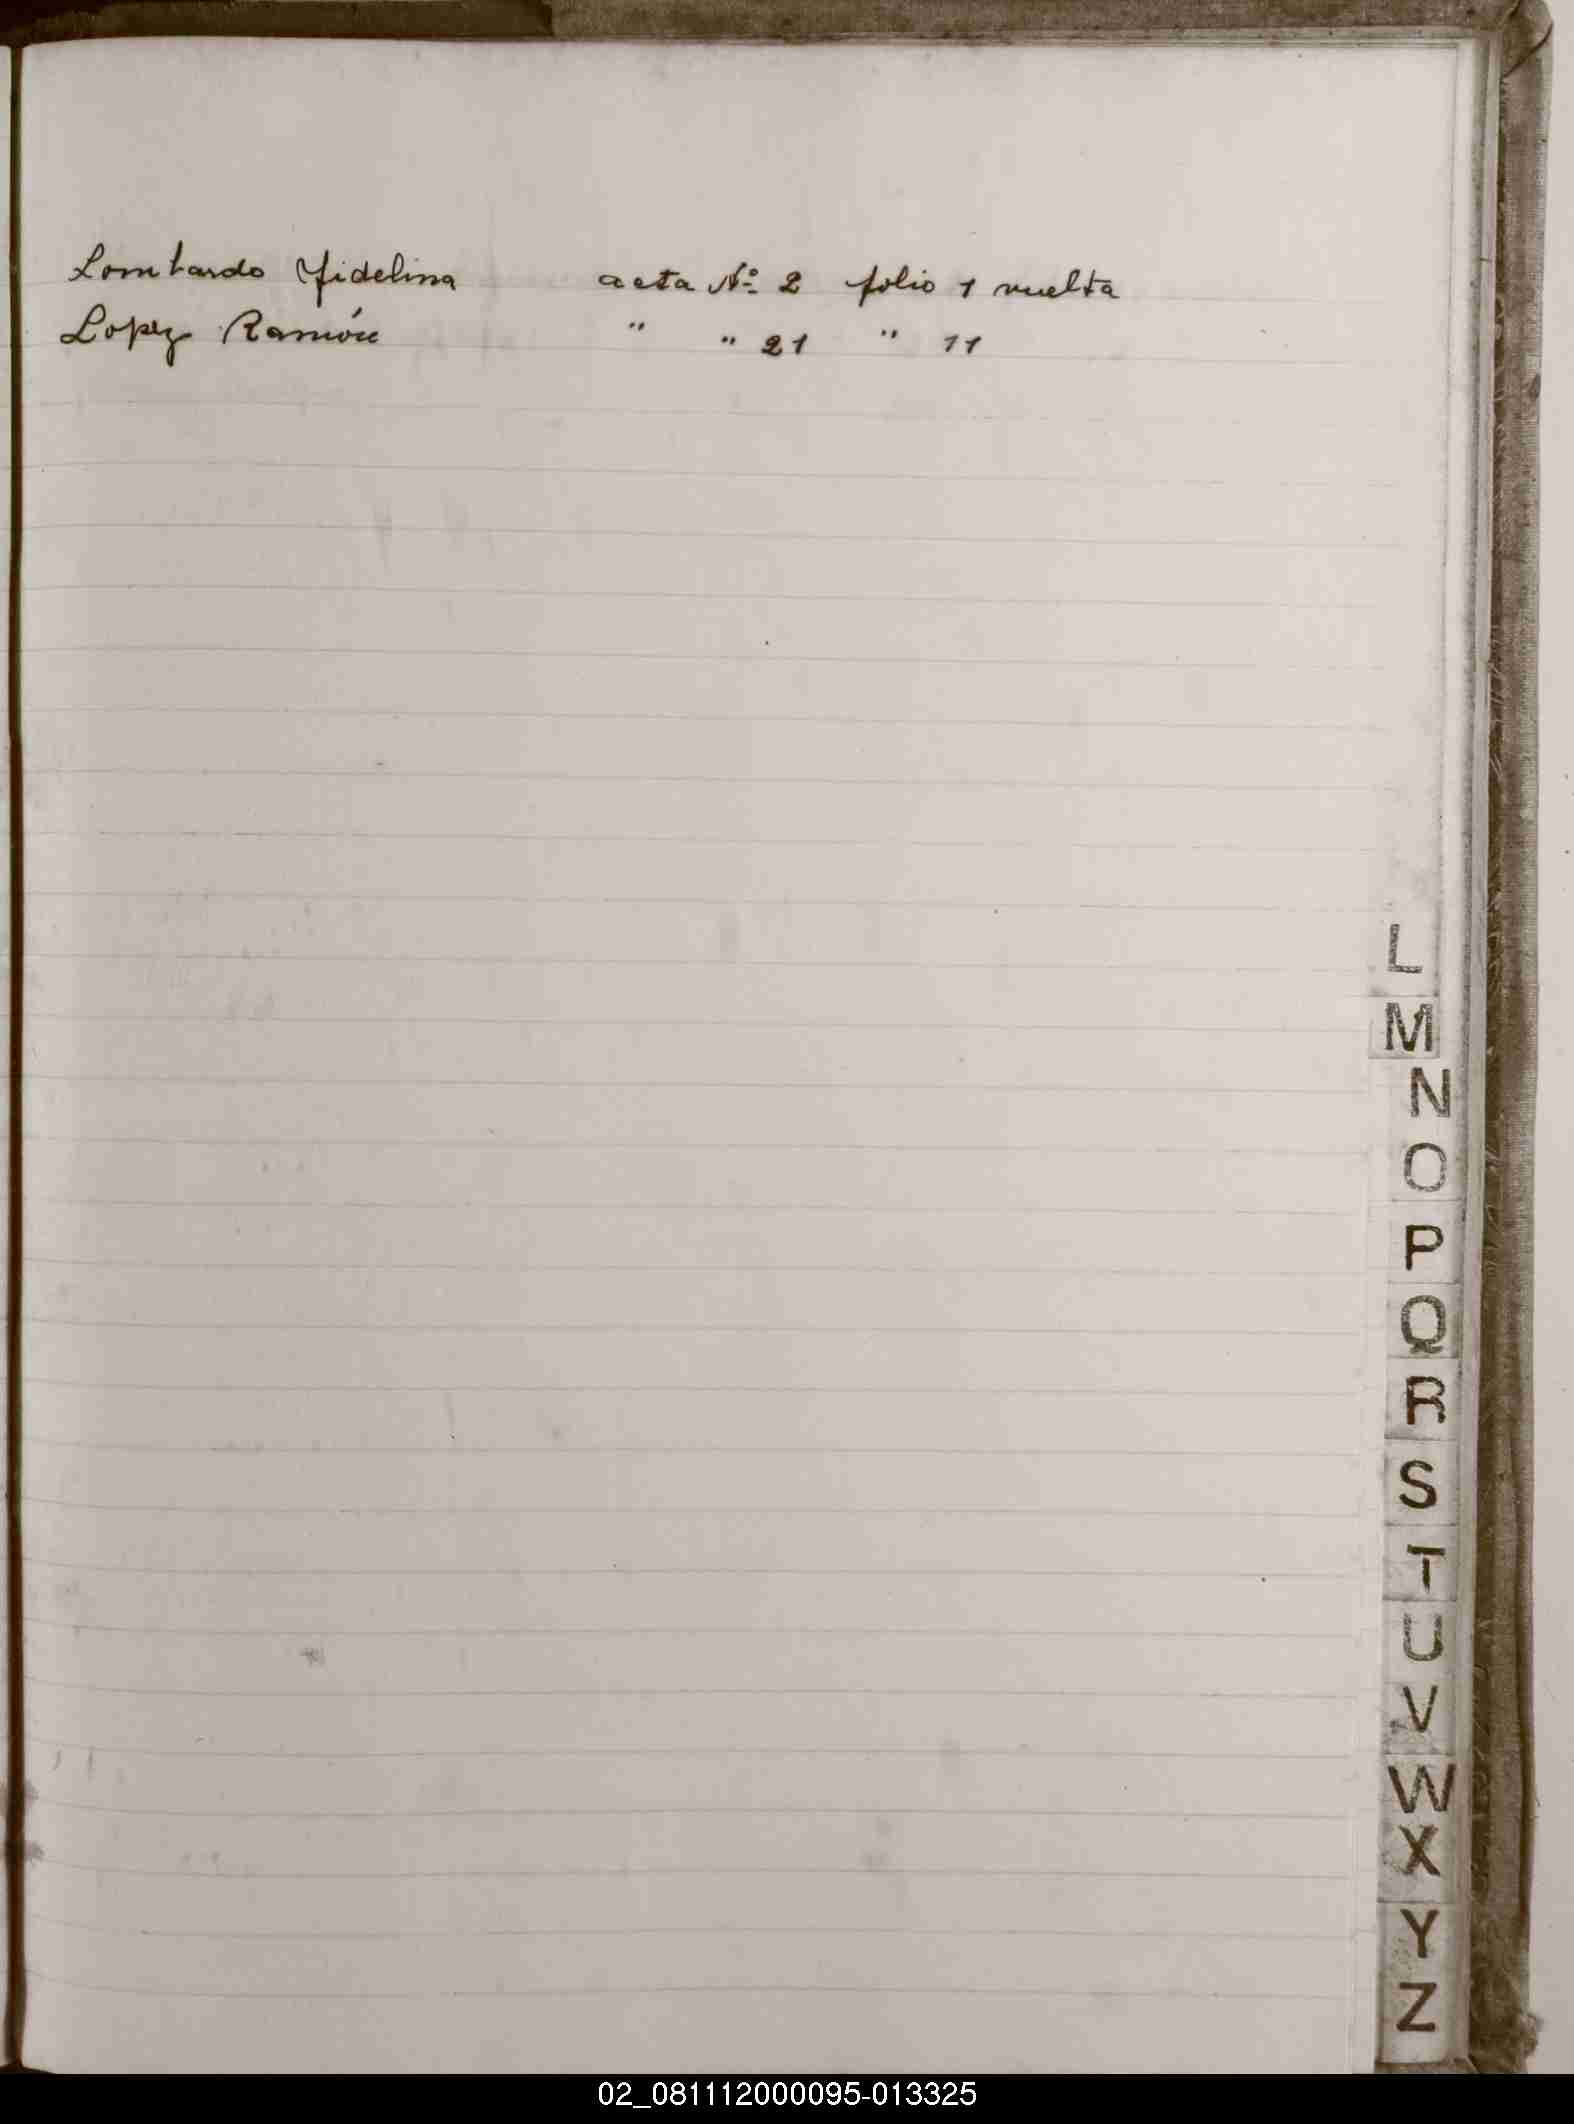 Lombardo Fidelina acta Nº 2 folio 1 vuelta
Lopez Ramón " " 21 " 11
L
M
N
O
P
Q
R
S
T
U
V
W
X
Y
Z
02_081112000095-013325